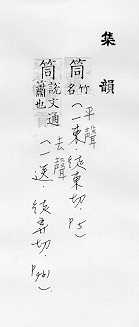 集韻
筒竹名 平聲(一東·徒東切. P5)
筒說文通簫也 去聲(一送·徒弄切.